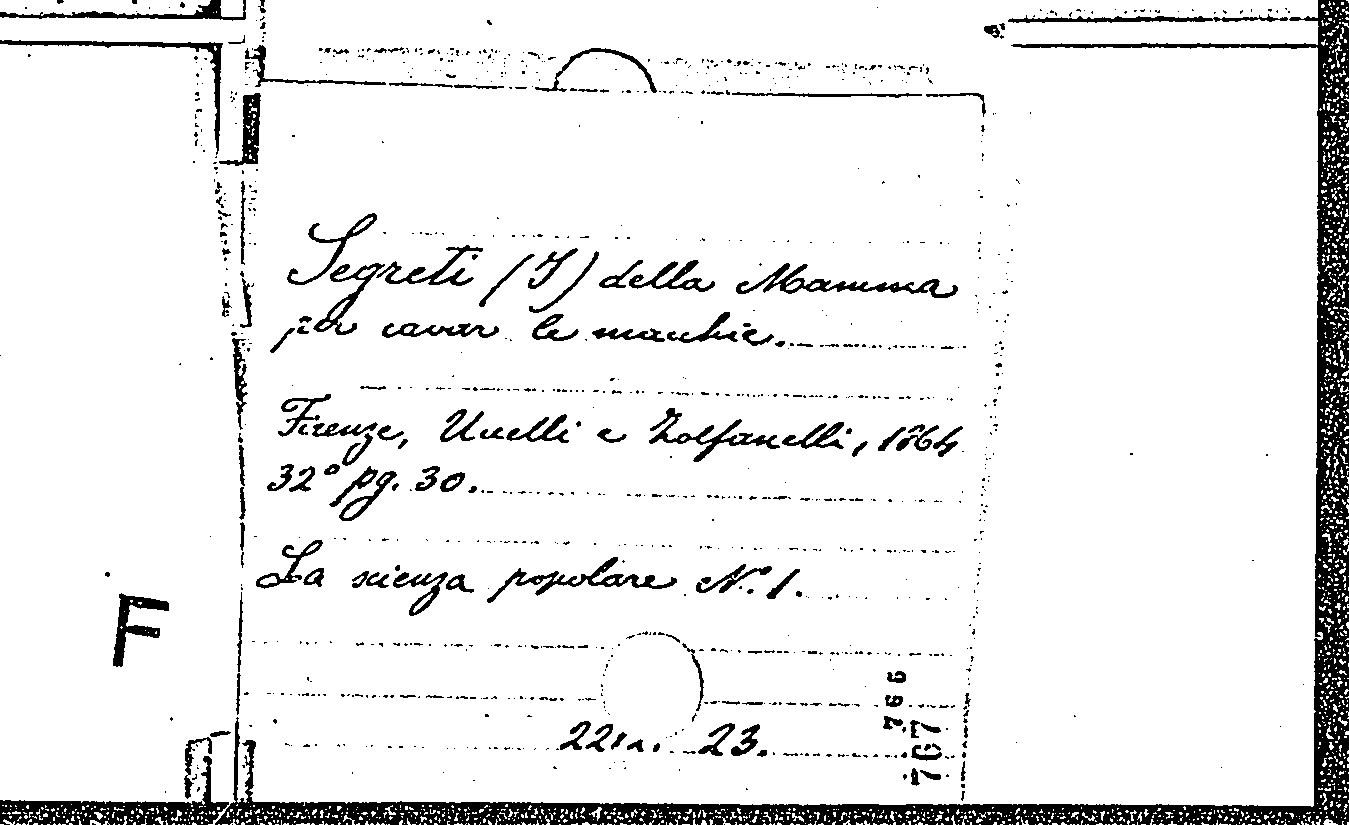 Segreti (I) della Mamma
per cavar le macchie.
Firenze, Uccelli e Zolfanelli, 1864
32° pg. 30.
La scienza popolare N.° 1.
23.
766
767
F